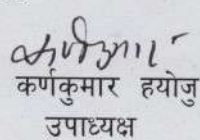 कर्णकुमार हयोजु
उपाध्यक्ष